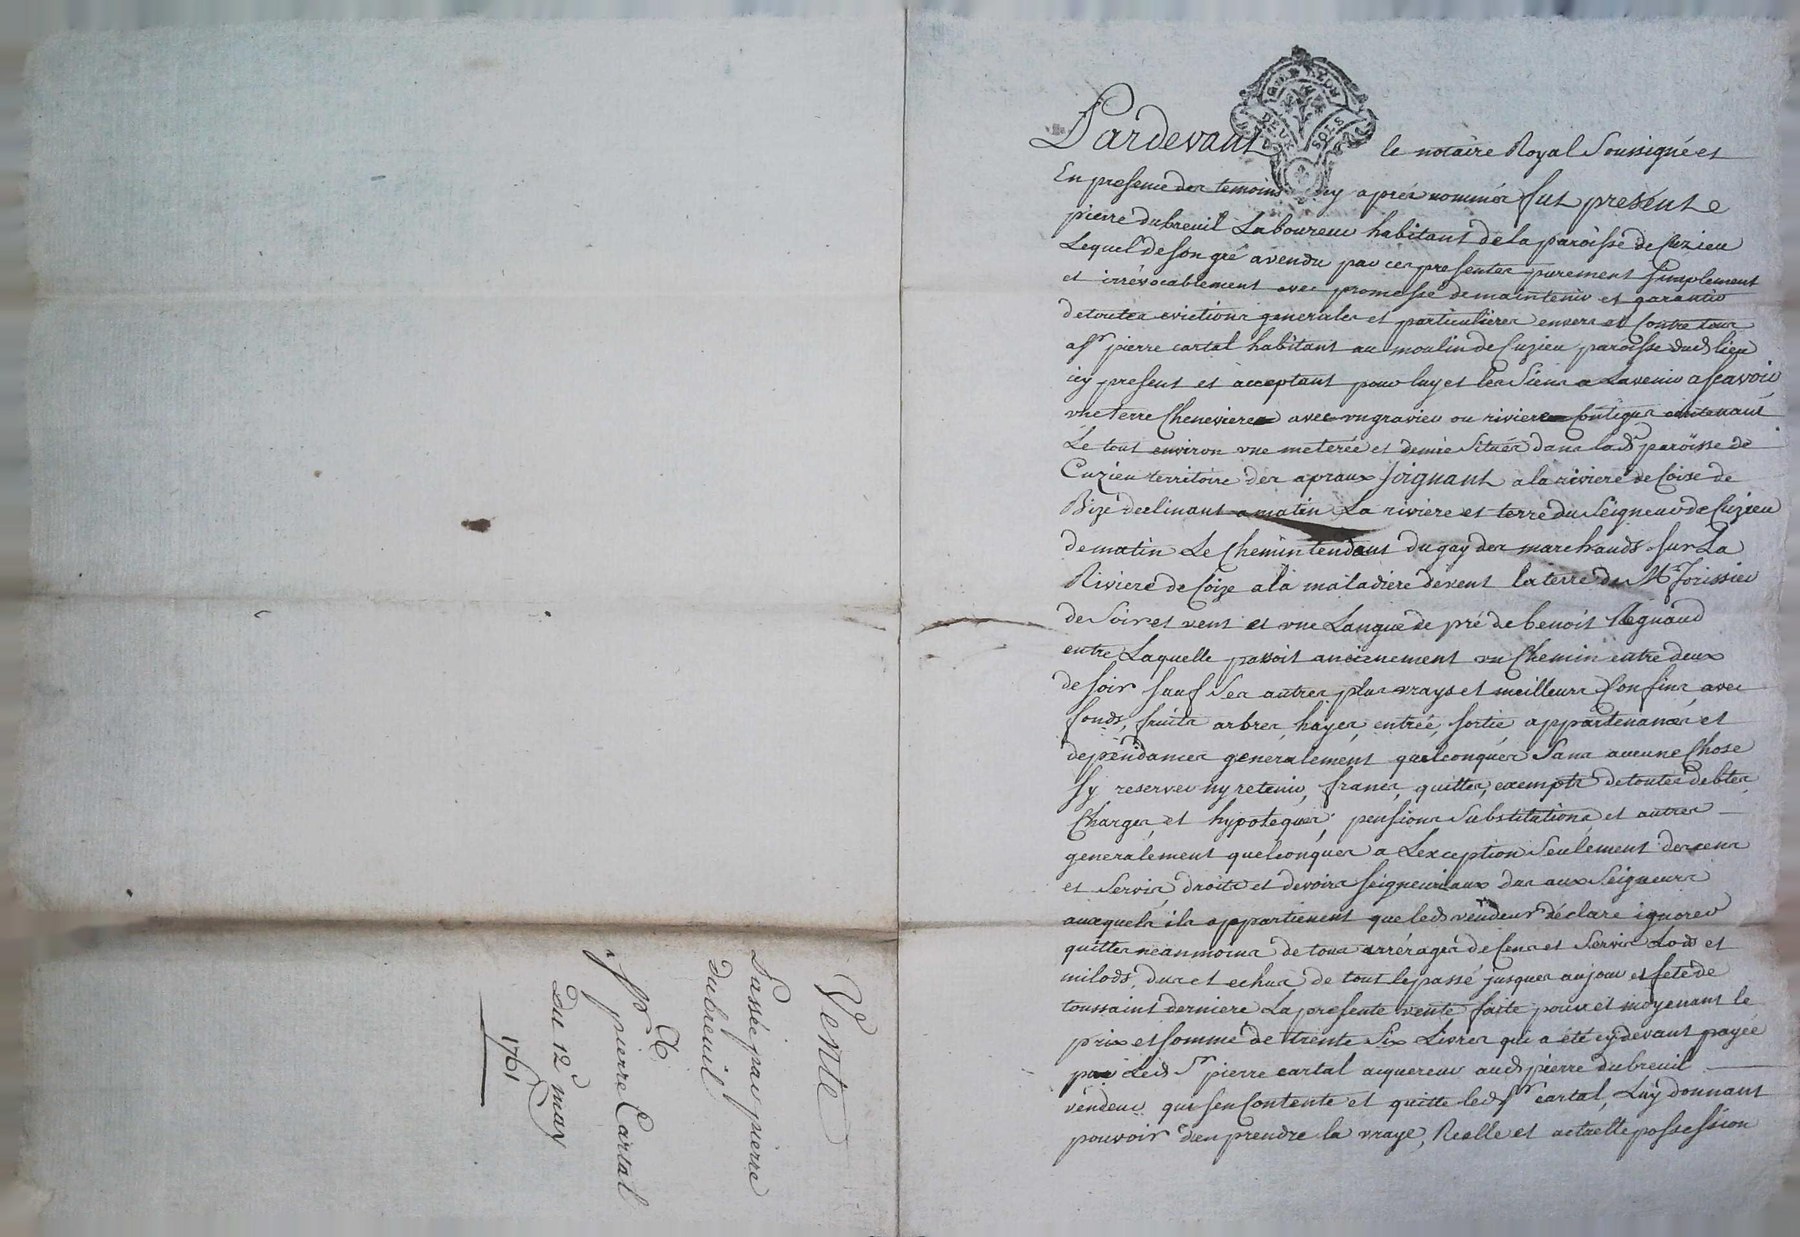 Vente
Passée par pierre
dubreuil
A
sr pierre Cartal
Du 12e may
1761
DEUX SOLS
Pardevant le notaire Royal Soussigné et
En presence des temoins cy aprés nommés fut present
pierre dubreuil Laboureur habitant de la paroisse de Cuzieu
Lequel de son gré a vendu par ces presentes purement simplement
et irrévocablement avec promesse de maintenir et garantir
de toutes evictions generales et particulieres envers et Contre tous
a sr pierre cartal habitant au moulin de Cuzieu paroisse dud lieu
icy present et acceptant pour luy et les Siens a Lavenir ascavoir
vne terre Cheneviere avec vn gravier ou riviere Contigus contenant
Le tout environ vne meterée et demie Situés dans lad paroisse de
Cuzieu territoire des apraux Joignant a la riviere de Coize de
Bize declinant a matin La riviere et terre du Seigneur de Cuzieu
de matin Le Chemin tendant du gay des marchands sur La
Riviere de Coize a la maladiere de vent la terre de Mr
de Soir et vent et vne Langue de pré de benoit Regnaud
entre Laquelle passoit anciennement vn Chemin entre deux
de soir sauf Ses autres plus vrays et meilleurs Confins avec
fonds, fruits arbres, hayes, entrée, sortie appartenances et
dependances generalement quelconques Sans aucune Chose
sy reserver ny retenir, francs, quittes, exempts de toutes debtes
Charges, et hypoteques, pensions Substitutions et autres
generalement quelconques a Lexception Seulement des cens
et Servis, droits et devoirs seigneuriaux dus aux Seigneurs
auxquels ils appartienent que led vendeur déclare ignorer
quittes neanmoins de tous arrérages de Cens et Servis Lods et
milods, dus et echus de tout le passé jusques au jour et fete de
toussaint derniere La presente vente faite pour et moyenant le
prix et somme de trente Six Livres qui a été cydevant payée
par Led Sr pierre cartal acquereur aud pierre dubreuil
vendeur qui sen Contente et quitte led sr cartal, Luy donnant
pouvoir d'en prendre la vraye, Reelle et actuelle possession